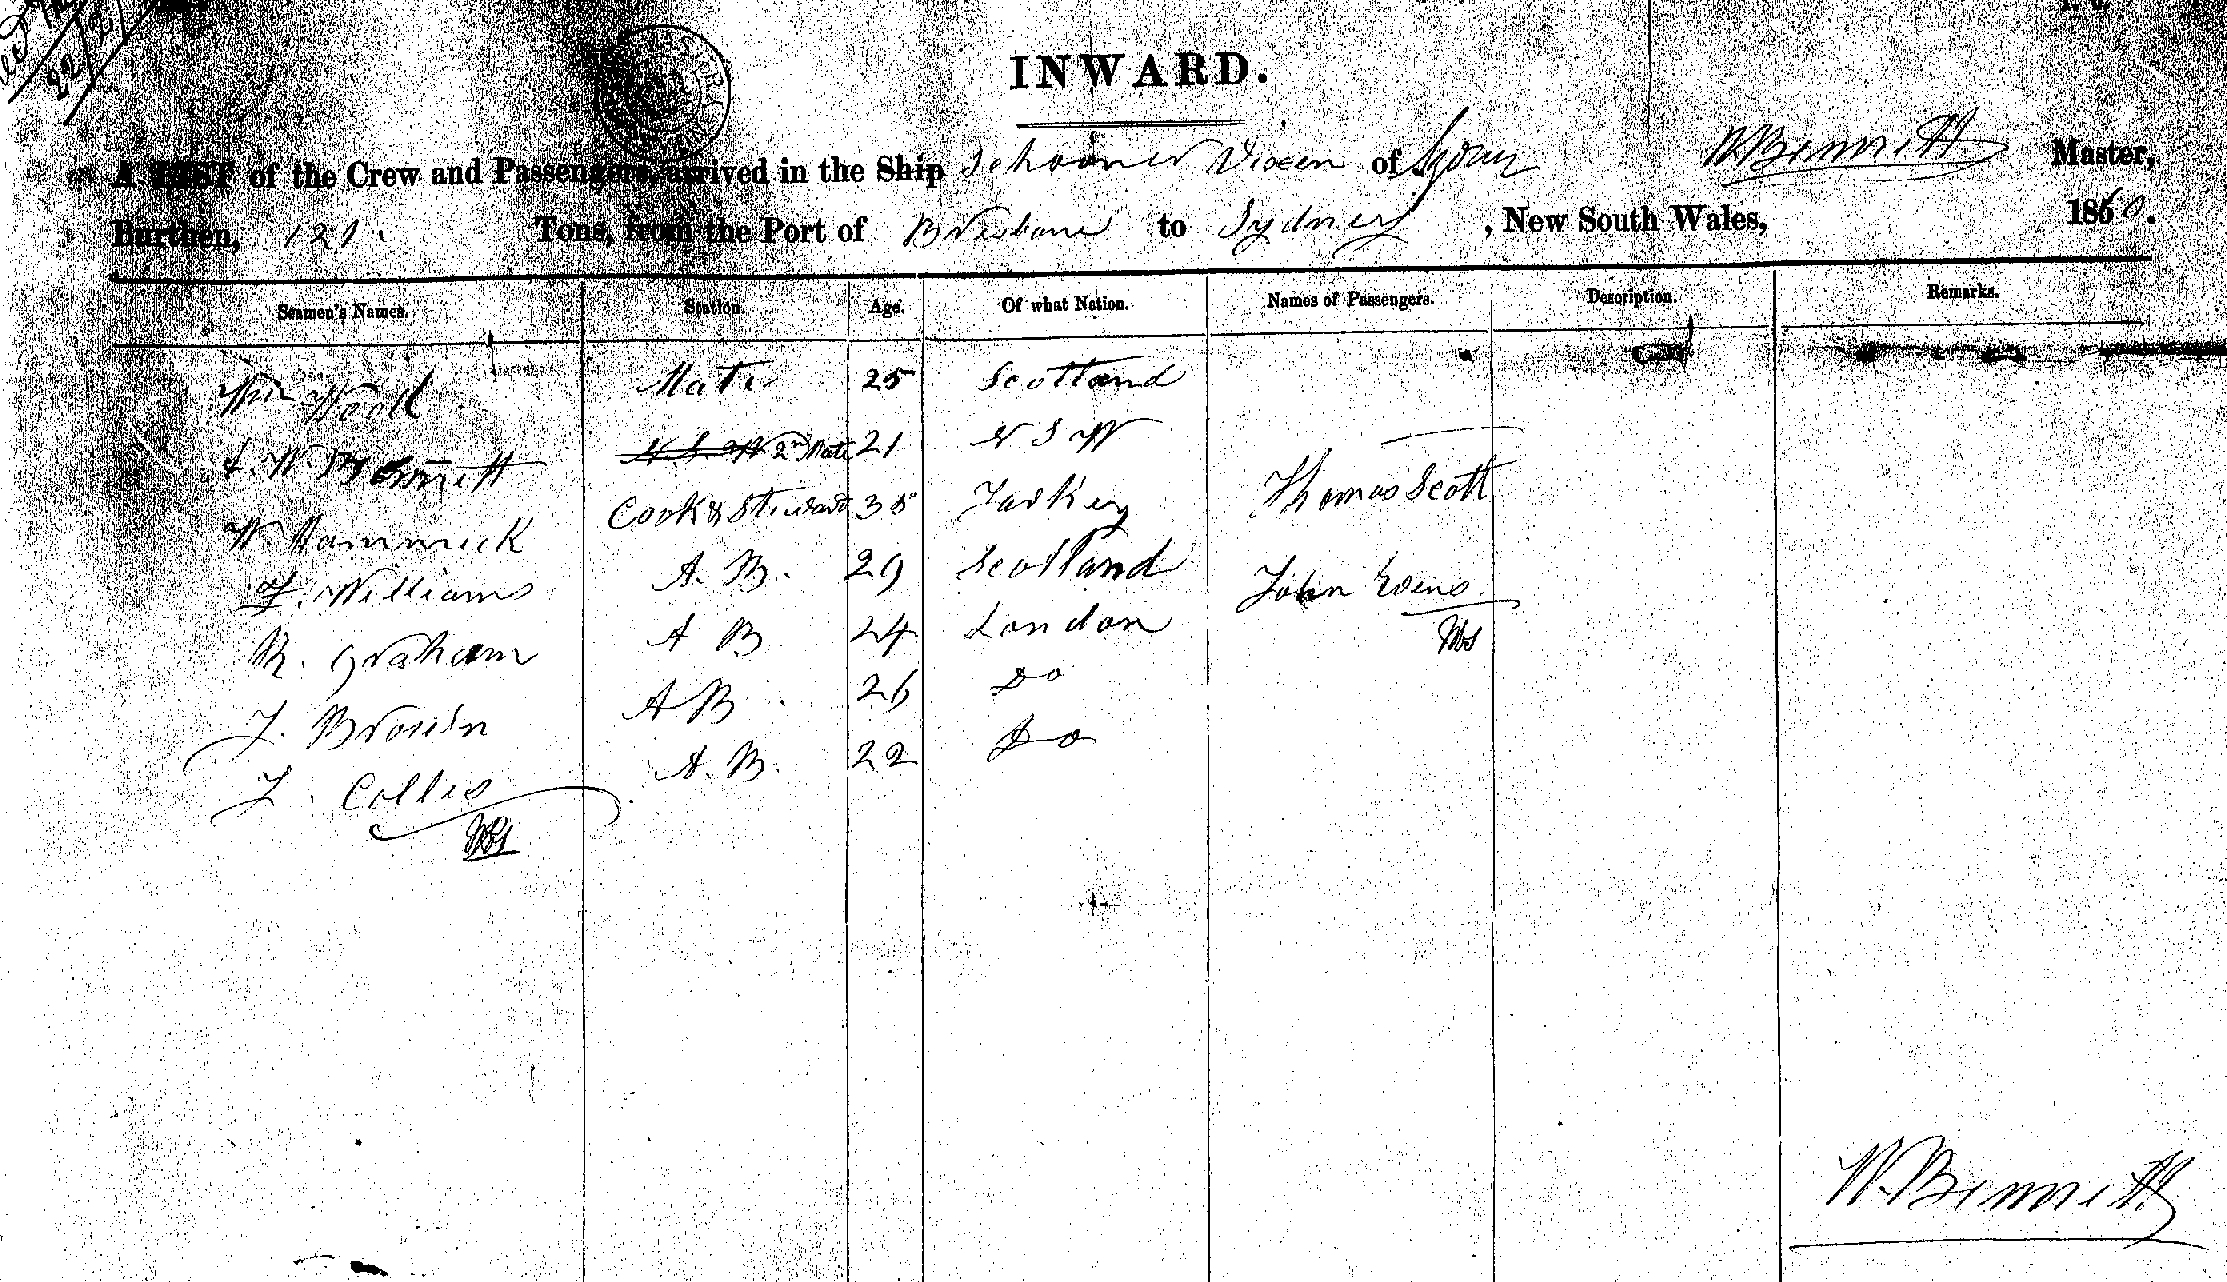 22/
INWARD.
A LIST of the Crew and Passengers, arrived in the Ship Schooner Vixen of Sydney W Bennett Master,
Burthen, 121. Tons, from the Port of Brisbane to Sydney, New South Wales, 1860.
Seamen's Names. Station. Age. Of what Nation. Names of Passengers. Description. Remarks.
Wm Wood Mate 25 Scotland
W. Bennett N.S.W 2nd Mate 21 N S W
W. Hammick Cook & Steward 35 Turkey Thomas Scott
J. Williams A. B. 29 Scotland John Evens
R. Graham A B 24 London
J. Brown A B 26 Do
J. Collis A. B. 22 Do
W. Bennett